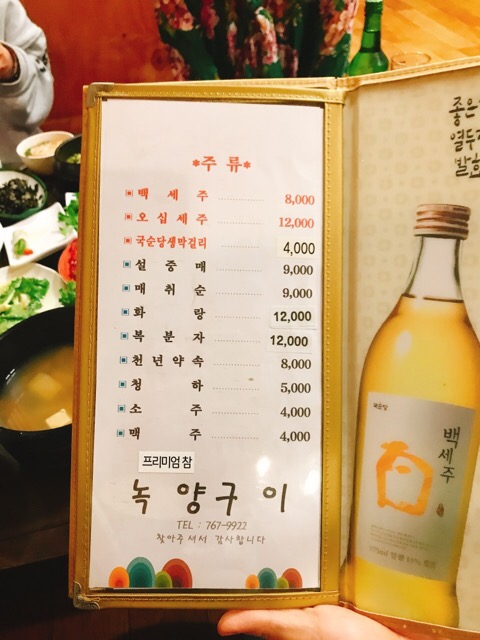 *주 류*
백 세 주 8,000
오 십 세 주 12,000
국순당생막걸리 4,000
설 중 매 9,000
매 취 순 9,000
화 랑 12,000
복 분 자 12,000
천 년 약 속 8,000
청 하 5,000
소 주 4,000
맥 주 4,000
프리미엄 참
녹 양 구 이
TEL : 767-9922
찾아주셔서 감사합니다
좋은
열두
발효
백세주